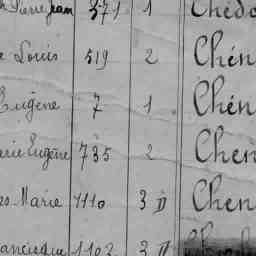 Pierre Jean 371 1 Chédo
Louis 519 2 Chén
Eugène 7 1 Chén
rie Eugène 735 2 Chen
Marie 1110 3 Chen
1102 3